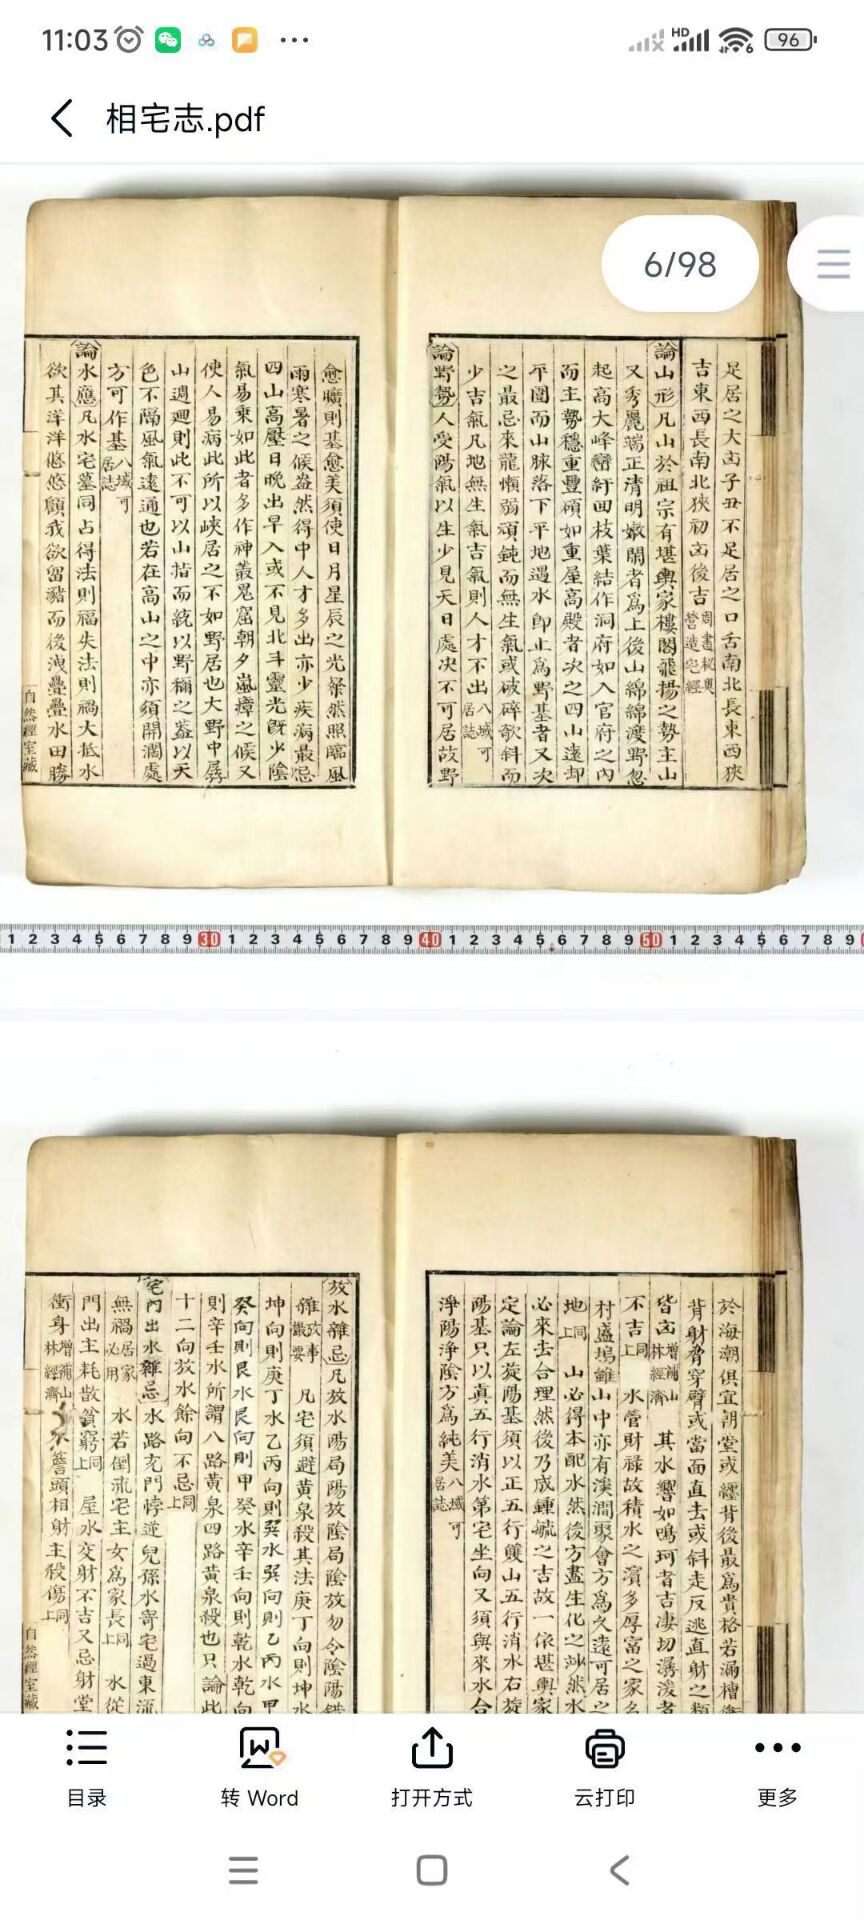 11:03
HD
6
96
相宅志.pdf
6/98
足居之大凶子丑不足居之口舌南北長東西狹
吉東西長南北狹初凶後吉周書秘奥營造宅經
論山形凡山於祖宗有堪輿家樓閣飛揚之勢主山
又秀麗端正清明嫩開者爲上後山綿綿渡野忽
起高大峰巒紆回枝葉結作洞府如入官府之內
而主勢穩重豐碩如重屋高殿者次之四山遠却
平圍而山脉落下平地遇水卽止爲野基者又次
之最忌來龍懶弱頑鈍而無生氣或破碎欹斜而
少吉氣凡地無生氣吉氣則人才不出八域可居誌
論野勢人受陽氣以生少見天日處決不可居故野
愈曠則基愈美須使日月星辰之光粲然照臨風
雨寒暑之候盎然得中人才多出亦少疾病最忌
四山高壓日晚出早入或不見北斗靈光旣少陰
氣易乘如此者多作神叢鬼窟朝夕嵐瘴之候又
使人易病此所以峽居之不如野居也大野中孱
山遶廻則此不可以山指而統以野稱之盖以天
色不隔風氣遠通也若在高山之中亦須開濶處
方可作基八域可居誌
論水應凡水宅墓同占得法則福失法則禍大抵水
欲其洋洋悠悠顧我欲留瀦而後洩疊疊水田勝
自然經室藏
1 2 3 4 5 6 7 8 9 30 1 2 3 4 5 6 7 8 9 40 1 2 3 4 5 6 7 8 9 50 1 2 3 4 5 6 7 8 9
於海潮俱宜朝堂或纏背後最爲貴格若漏槽
背射脅穿臂或當面直去或斜走反逃直射之類
皆凶增補山林經濟 其水響如鳴珂者吉凄切潺湲者
不吉上同 水管財祿故積水之濵多厚富之家名
村盛塢雖山中亦有溪澗聚會方爲久遠可居之
地上同 山必得本配水然後方盡生化之玅然水
必來去合理然後乃成鍾毓之吉故一依堪輿家
定論左旋陽基須以正五行雙山五行消水右旋
陽基只以眞五行消水第宅坐向又須與來水合
淨陽淨陰方爲純美八域可居誌
放水雜忌凡放水陽局陽放陰局陰放勿令陰陽錯
雜攷事撮要 凡宅須避黄泉殺其法庚丁向則坤水
坤向則庚丁水乙丙向則巽水巽向則乙丙水甲
癸向則艮水艮向則甲癸水辛壬向則乾水乾向
則辛壬水所謂八路黄泉四路黄泉殺也只論此
十二向放水餘向不忌上同
宅內出水雜忌水路充門悖逆兒孫水寄宅過東流
無禍居家必用 水若倒流宅主女爲家長上同 水從
門出主耗散貧窮上同 屋水交射不吉又忌射堂
衝身增補山林經濟 簷頭相射主殺傷上同
自然經室藏
目录
转 Word
打开方式
云打印
更多